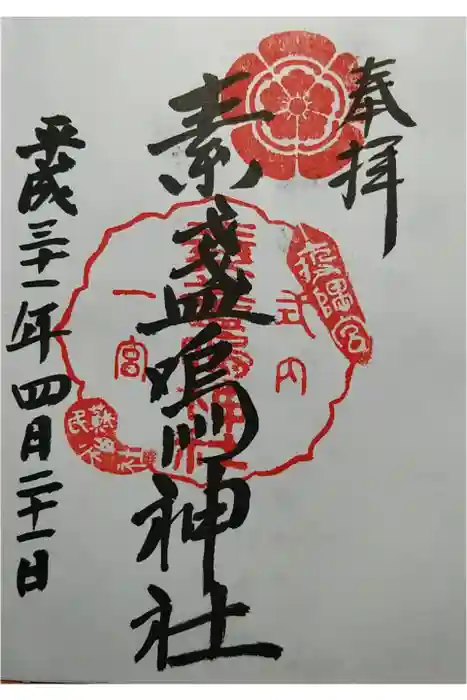 奉拝
素盞嗚神社
平成三十一年四月二十一日
式内
一宮
疫隅宮
蘇民